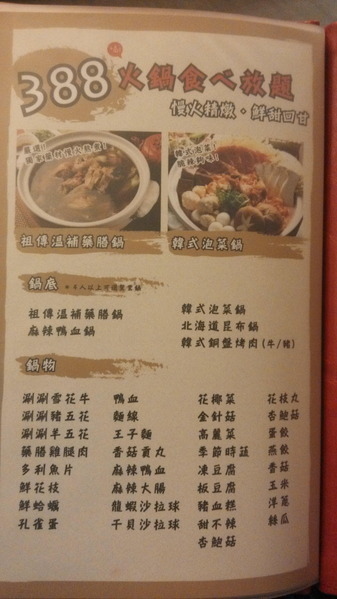 388 火鍋食べ放題
慢火精燉·鮮甜回甘
嚴選!
韓式泡菜!
祖傳溫補藥膳鍋
韓式泡菜鍋
鍋底
祖傳溫補藥膳鍋
麻辣鴨血鍋
韓式泡菜鍋
北海道昆布鍋
韓式銅盤烤肉(牛/豬)
鍋物
涮涮雪花牛
涮涮豬五花
涮涮羊五花
藥膳雞腿肉
多利魚片
鮮花枝
鮮蛤蠣
孔雀蛋
鴨血
麵線
王子麵
香菇貢丸
麻辣鴨血
麻辣大腸
龍蝦沙拉球
干貝沙拉球
花椰菜
金針菇
高麗菜
季節時蔬
凍豆腐
板豆腐
豬血糕
甜不辣
杏鮑菇
花枝丸
杏鮑菇
蛋餃
燕餃
香菇
玉米
洋蔥
絲瓜